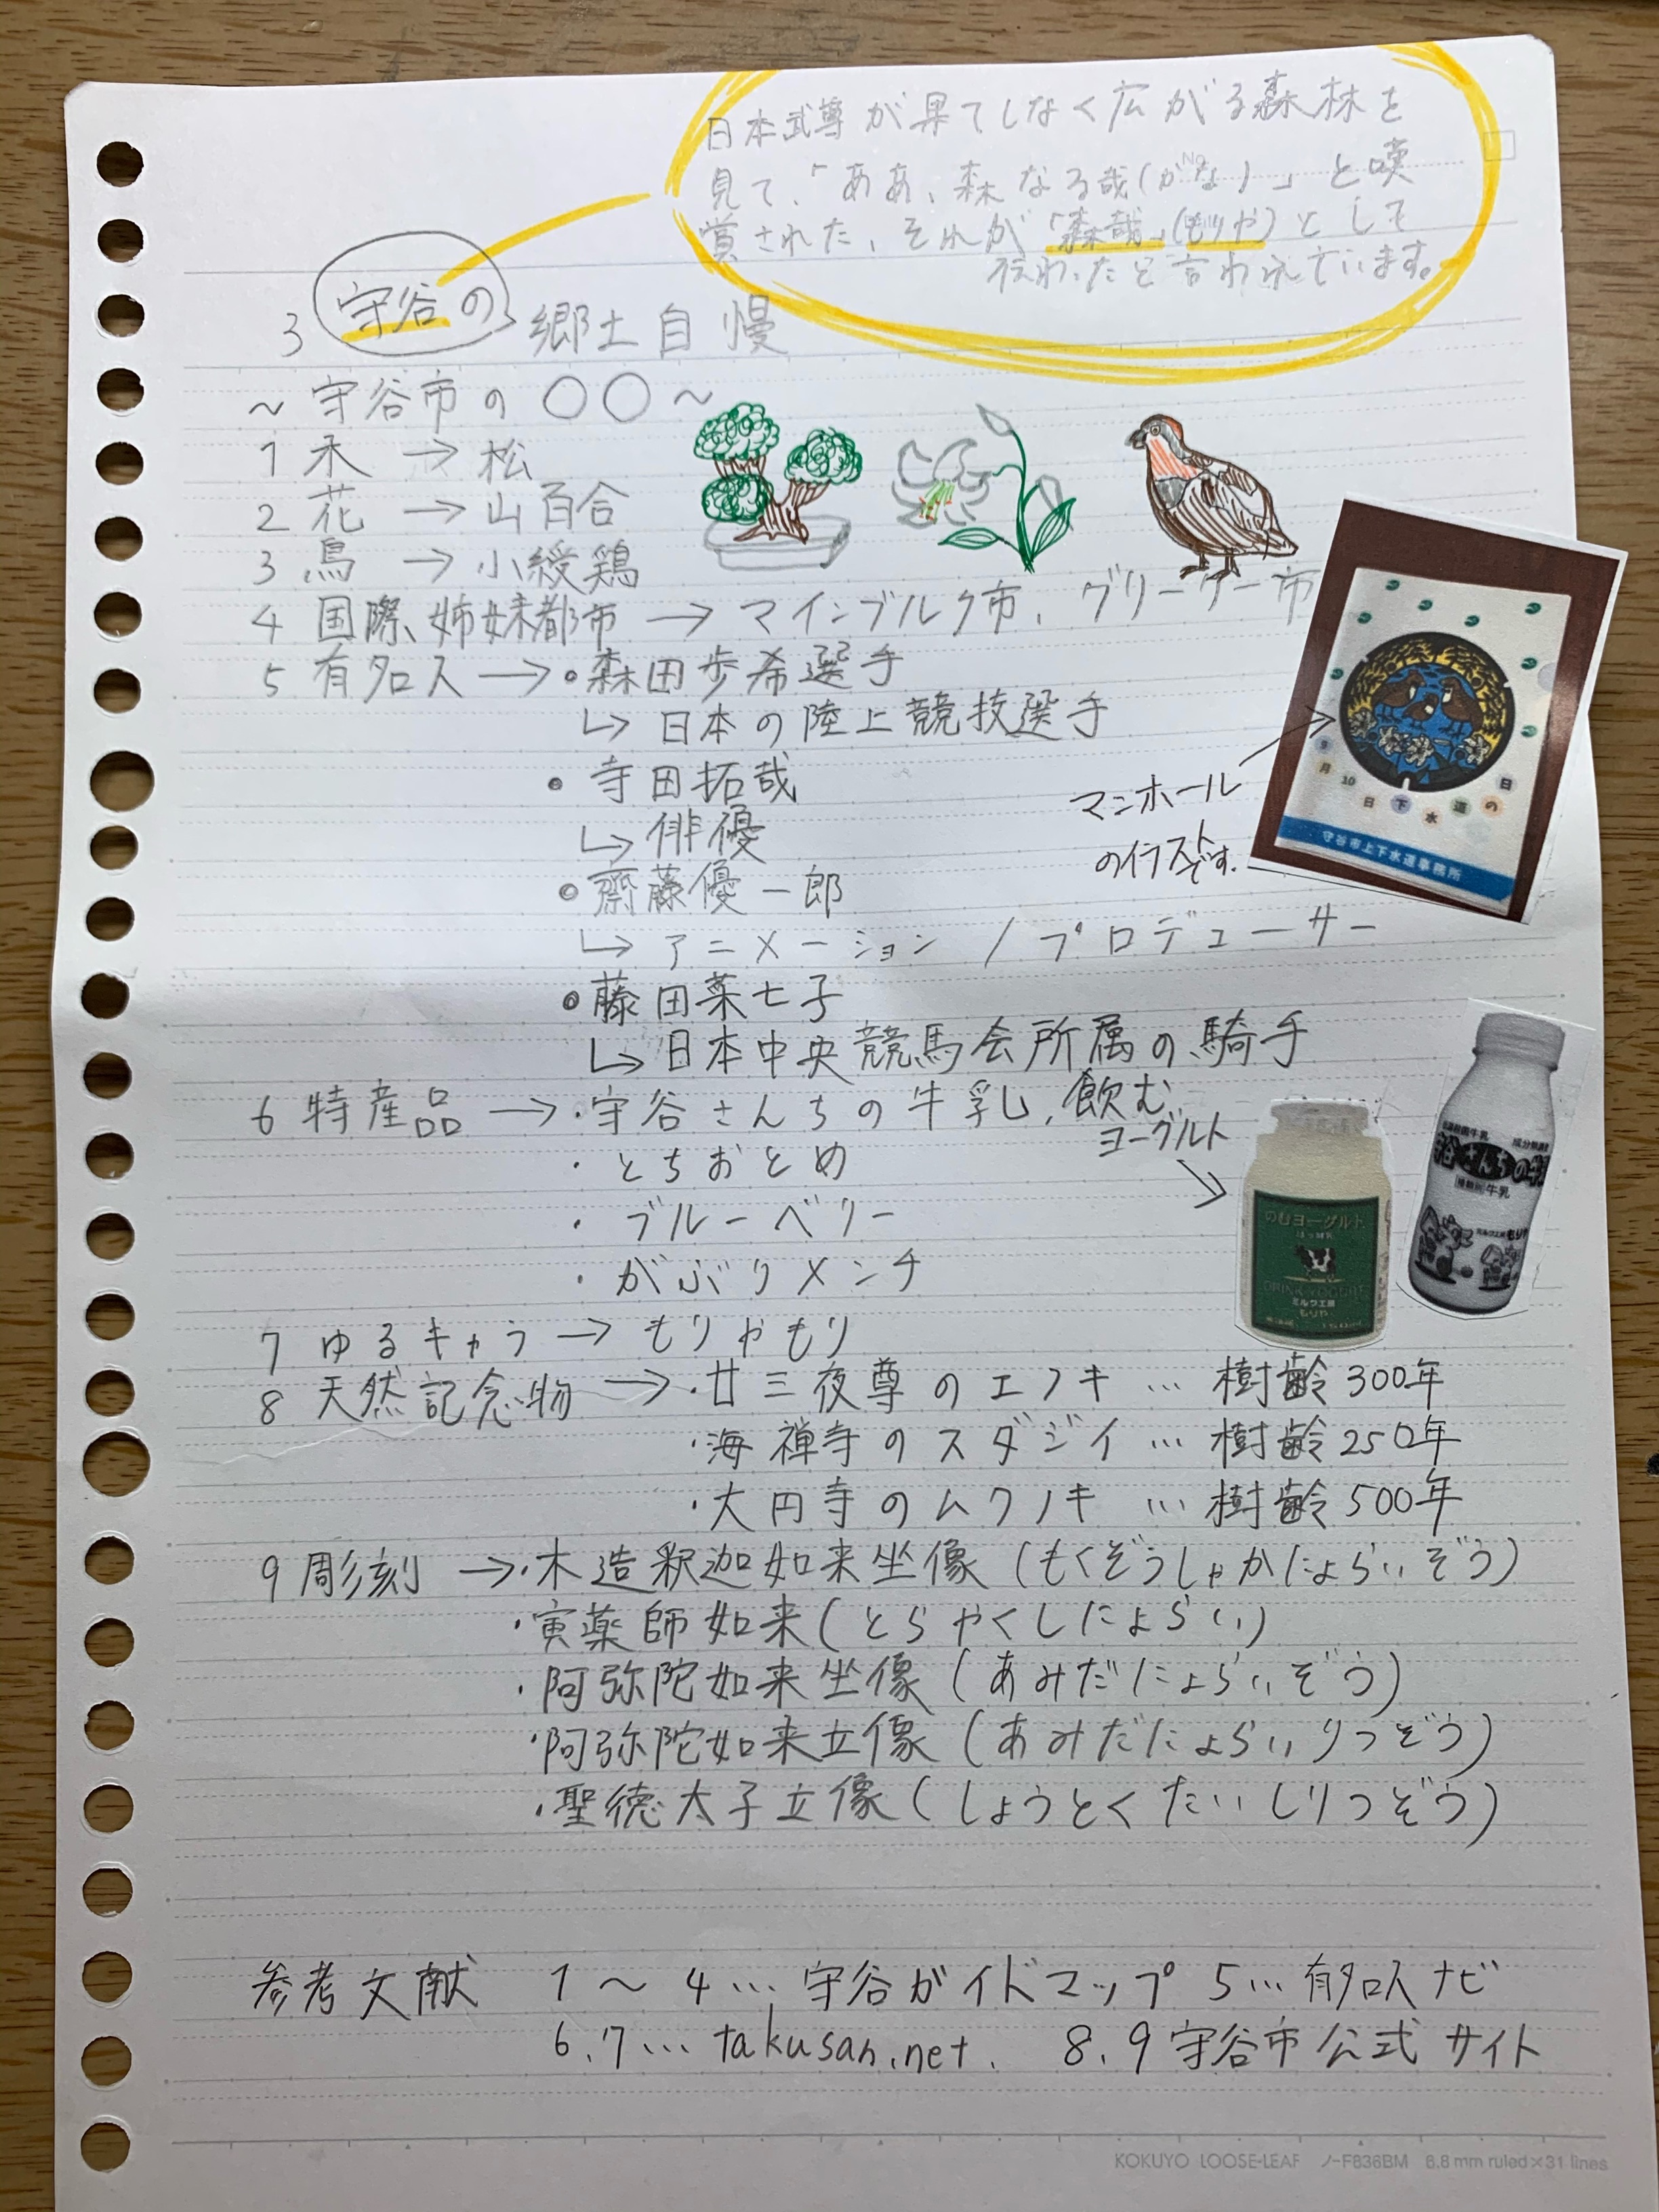 日本武尊が果てしなく広がる森林を
見て、「ああ、森なる哉(がな)」と嘆
賞された、それが「森哉」(もりや)として
伝わったと言われています。
No
3 守谷の郷土自慢
～守谷市の〇〇～
1 木 → 松
2 花 → 山百合
3 鳥 → 小綬鶏
4 国際姉妹都市 → マインブルク市、グリーリー市
5 有名人 → •森田歩希選手
↳ 日本の陸上競技選手
• 寺田拓哉
↳ 俳優
• 齋藤優一郎
↳ アニメーション / プロデューサー
• 藤田菜七子
↳ 日本中央競馬会所属の騎手
マンホール
のイラスト
です.
9月10日下水道の日
守谷市上下水道事務所
6 特産品 → ・守谷さんちの牛乳, 飲む
ヨーグルト
・とちおとめ
・ブルーベリー
・がぶりメンチ
のむヨーグルト
はっ酵乳
DRINK YOGURT
ミルク工房
もりや
成分無調整
守谷さんちの牛
牛乳
ミルク工房もりや
7 ゆるキャラ → もりやもり
8 天然記念物 → ・廿三夜尊のエノキ … 樹齢300年
・海禅寺のスダジイ … 樹齢250年
・大円寺のムクノキ … 樹齢500年
9 彫刻 → ・木造釈迦如来坐像 (もくぞうしゃかにょらいぞう)
・寅薬師如来 (とらやくしにょらい)
・阿弥陀如来坐像 (あみだにょらいぞう)
・阿弥陀如来立像 (あみだにょらいりつぞう)
・聖徳太子立像 (しょうとくたいしりつぞう)
参考文献 1～4…守谷ガイドマップ 5…有名人ナビ
6.7…takusan.net. 8.9 守谷市公式サイト
KOKUYO LOOSE-LEAF ノ-F836BM 6.8 mm ruled×31 lines